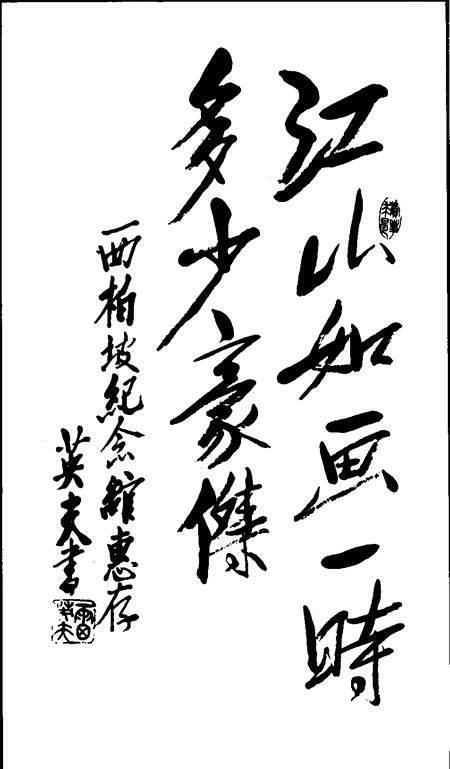 江山如画一時
多少豪傑
西柏坡紀念舘惠存
英夫書